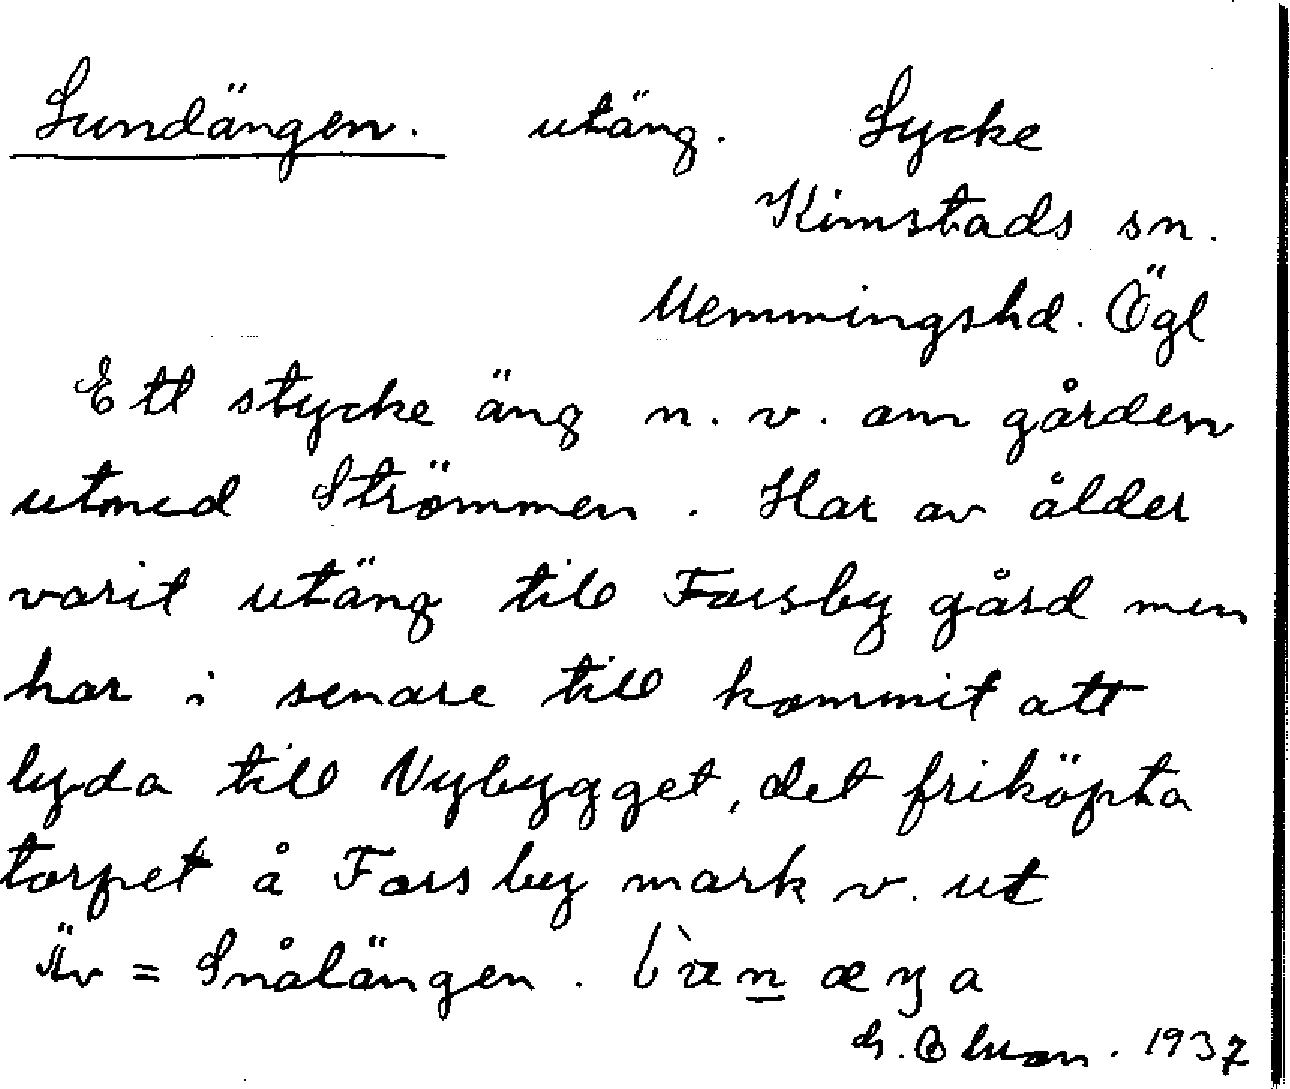 Lundängen. utäng. Lycke
Kimstads sn.
Memmingshd. Ögl
Ett stycke äng n. v. om gården
utmed Strömmen. Har av ålder
varit utäng till Forsby gård men
har i senare till kommit att
lyda till Nybygget, det friköpta
torpet å Forsby mark v. ut
Äv = Snålängen.
1937